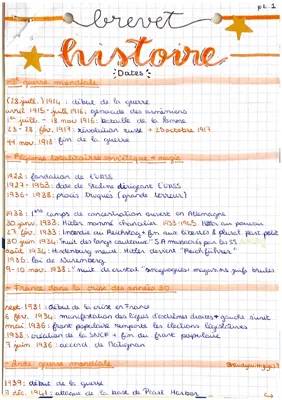 pt. 1
brevet
histoire
Dates
1ère guerre mondiale
(28 juill.) 1914 : début de la guerre
avril 1915 - juill. 1916 : génocide des arméniens
: bataille de la Somme
23 - 28 fév. 1917 : révolution russe + 25 octobre 1917
11 nov. 1918 : fin de la guerre
Régimes totalitaires soviétique + nazie
1922 : fondation de l'URSS
1927 - 1953 : date de Staline dirigeant l'URSS
1936 - 1938 : procès truqués (grande terreur)
1933 : 1ers camps de concentration ouvert en Allemagne
30 janv. 1933 : Hitler nommé chancelier 1933-1945 Hitler au pouvoir
27 fév. 1933 : Incendie du Reichstag + fin aux libertés
30 juin 1934 : "nuit des longs couteaux" SA massacrés par les SS
août 1934 : Hindenburg meurt. Hitler devient "Reichführer"
1935 : loi de Nuremberg
9-10 nov. 1938 : "nuit de cristal" synagogues magasins juifs brulés
France dans la crise des années 30
sept. 1931 : début de la crise en France
6 fév. 1934 : manifestation des ligues d'extrêmes droites + gauche s'unit
mai 1936 : front populaire remporte les élections législatives
1938 : création de la SNCF + fin du front populaire
7 juin 1936 : accord de Matignon
2nde guerre mondiale
1939 : début de la guerre
7 déc. 1941 : attaque de la base de Pearl Harbor